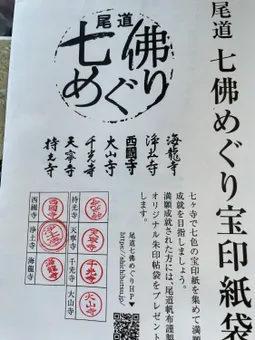 尾道 七佛めぐり宝印紙袋
尾道
七佛
めぐり
海龍寺
浄土寺
西國寺
大山寺
千光寺
天寧寺
持光寺
七ヶ寺で七色の宝印紙を集めて満願
成就を目指しましょう。
満願成就された方には、尾道帆布謹製
オリジナル朱印帖袋をプレゼント
します。
尾道七佛めぐりHP▼
https://shichibutsu.jp/
持光寺
天寧寺
天寧寺
千光寺
千光寺
大山寺
大山寺
西國寺
西國寺
浄土寺
海龍寺